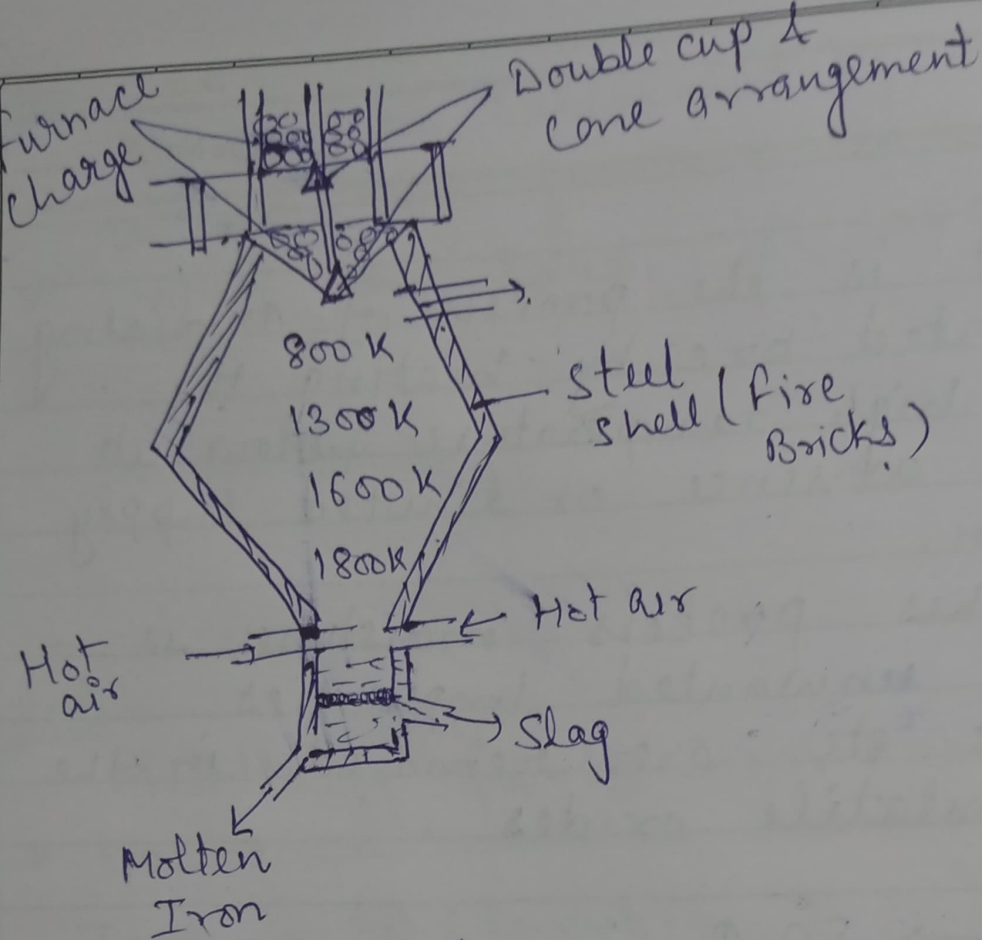 Furnace
charge
Double cup &
cone arrangement
800 K
1300 K
1600 K
1800K
Steel
shell (Fire
Bricks)
Hot air
Hot
air
Slag
Molten
Iron